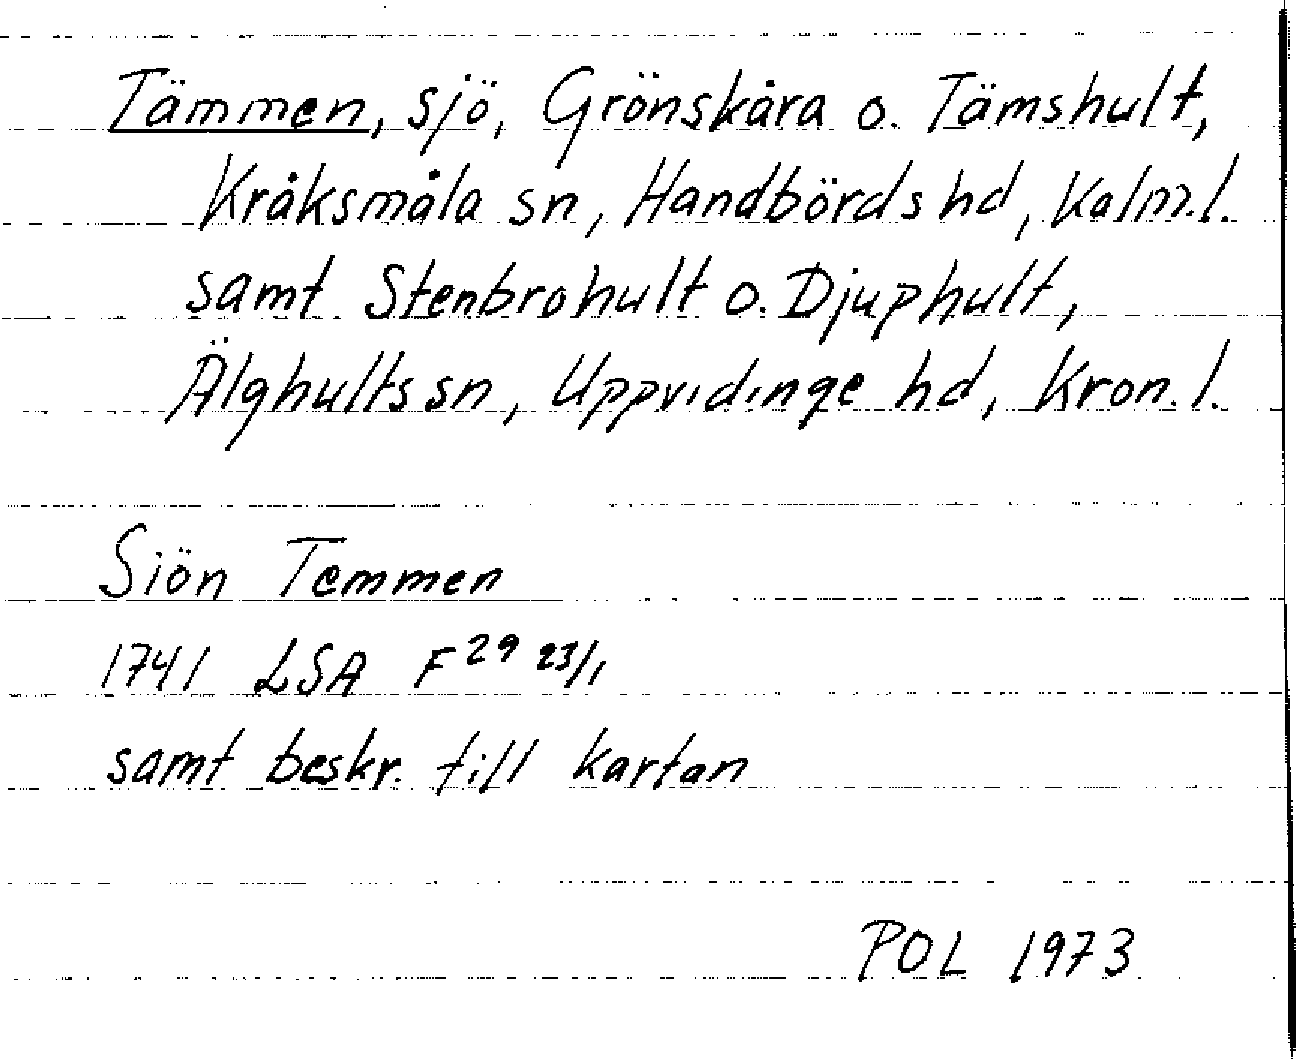 Tämmen, sjö, Grönskåra o. Tämshult,
Kråksmåla sn, Handbörds hd, Kalm. l.
samt Stenbrohult o. Djuphult,
Älghults sn, Uppvidinge hd, Kron. l.
Siön Temmen
1741 LSA F 29 23/1
samt beskr. till kartan
POL 1973